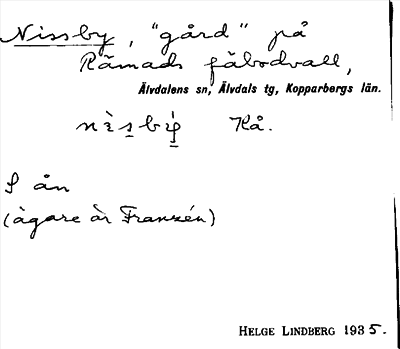 Nissby, "gård" på
Råmads fäbodvall,
Älvdalens sn, Älvdals tg, Kopparbergs län.
Kå.
S ån
(ägare är Franzén)
HELGE LINDBERG 1935.